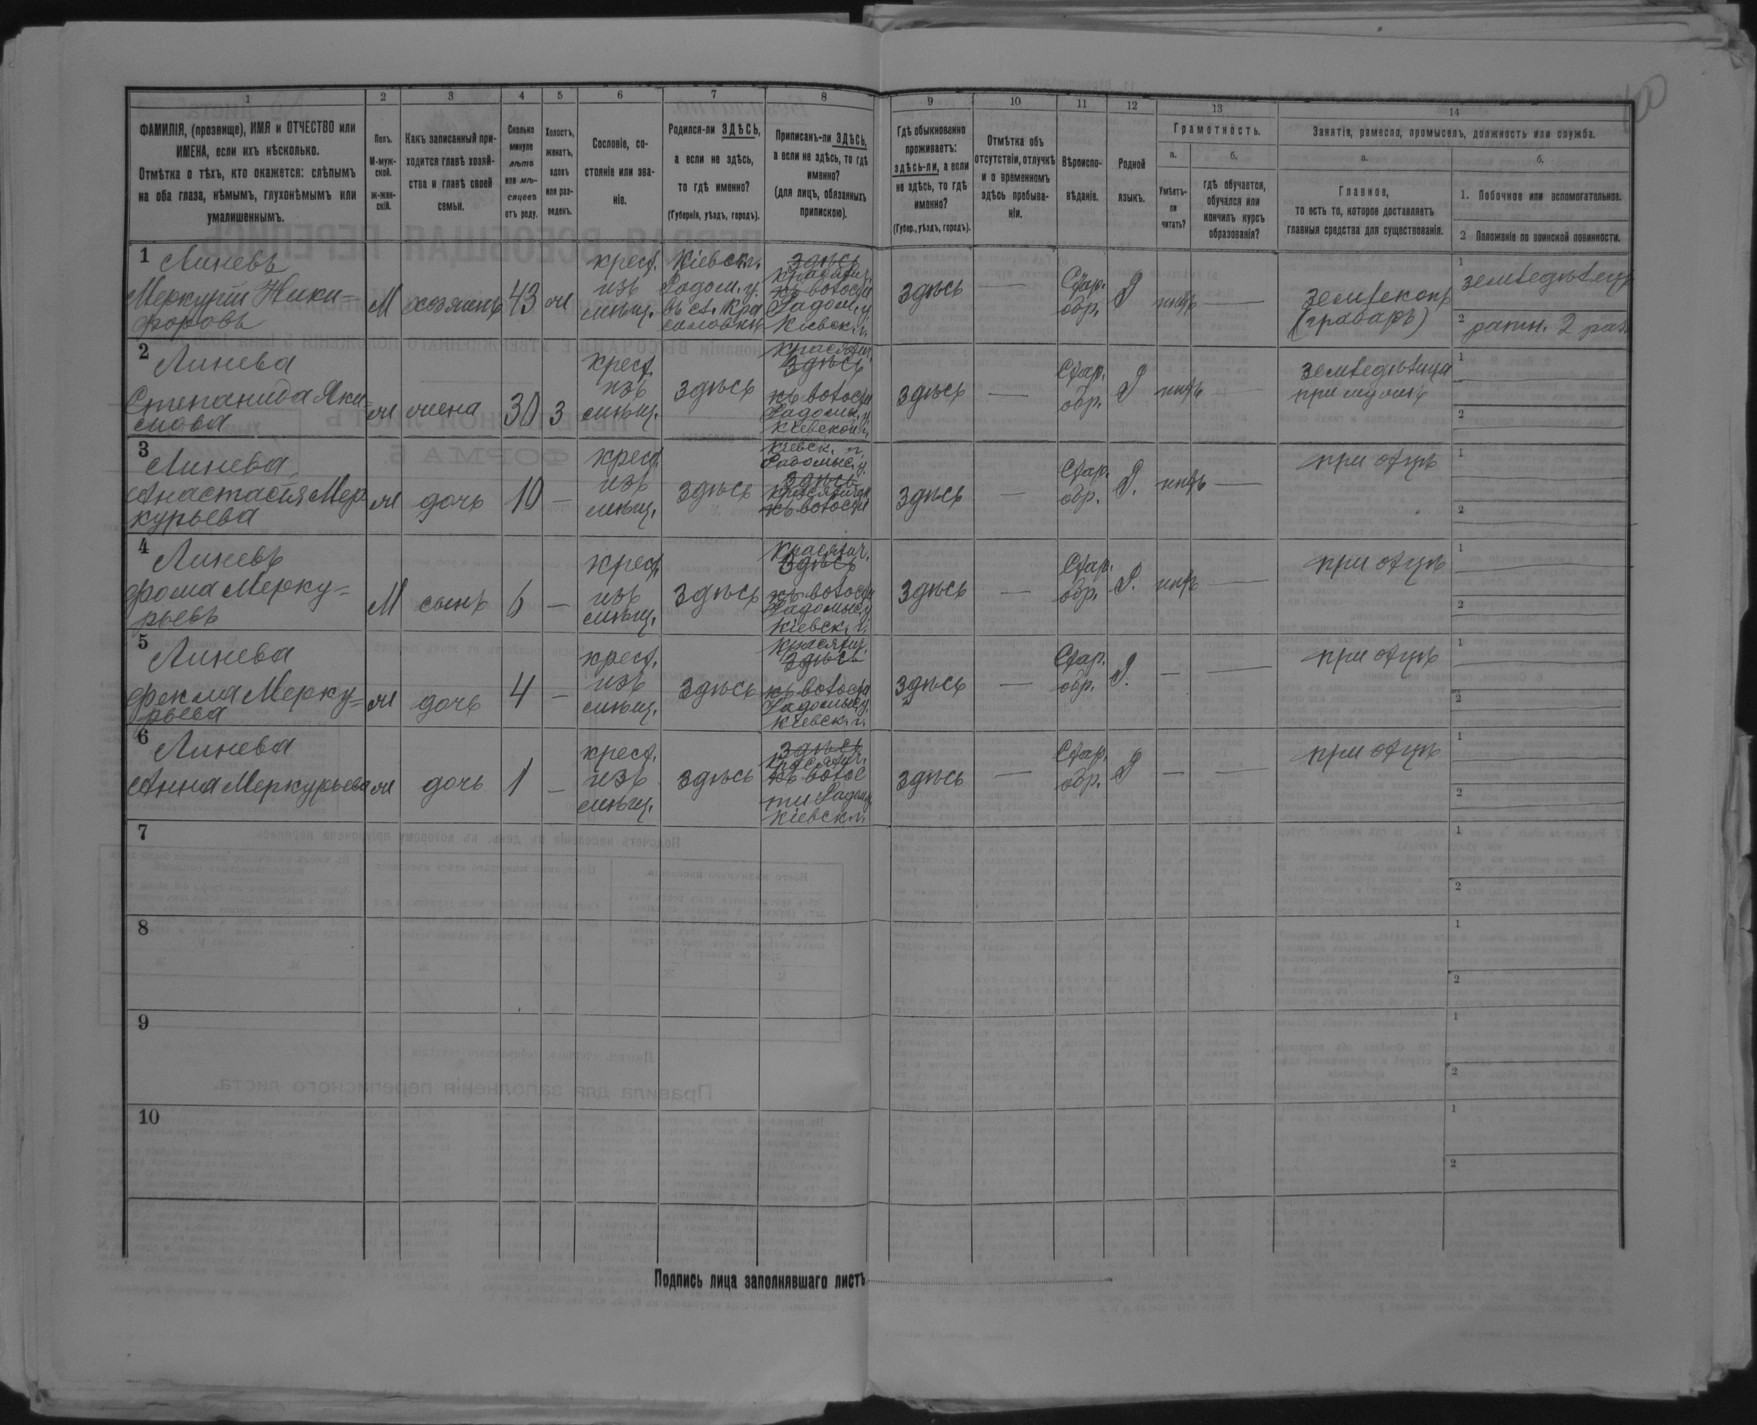 1 2 3 4 5 6 7 8 9 10 11 12 13 14
ФАМИЛІЯ, (прозвище), ИМЯ и ОТЧЕСТВО или ИМЕНА, если ихъ нѣсколько.
Отмѣтка о тѣхъ, кто окажется: слѣпымъ на оба глаза, нѣмымъ, глухонѣмымъ или умалишеннымъ.
Полъ.
М-мужской.
ж-женскій.
Какъ записанный приходится главѣ хозяйства и главѣ своей семьи.
Сколько минуло лѣтъ или мѣсяцевъ отъ роду.
Холостъ, женатъ, вдовъ или разведенъ.
Сословіе, состояніе или званіе.
Родился-ли ЗДѢСЬ, а если не здѣсь, то гдѣ именно?
(Губернія, уѣздъ, городъ).
Приписанъ-ли ЗДѢСЬ, а если не здѣсь, то гдѣ именно?
(для лицъ, обязанныхъ припискою).
Гдѣ обыкновенно проживаетъ: здѣсь-ли, а если не здѣсь, то гдѣ именно?
(Губер., уѣздъ, городъ).
Отмѣтка объ отсутствіи, отлучкѣ и о временномъ здѣсь пребываніи.
Вѣроисповѣданіе.
Родной языкъ.
Грамотность.
а.
Умѣетъ-ли читать?
б.
гдѣ обучается, обучался или кончилъ курсъ образованія?
Занятія, ремесло, промыселъ, должность или служба.
а.
Главное,
то есть то, которое доставляетъ главныя средства для существованія.
б.
1. Побочное или вспомогательное.
2 Положеніе по воинской повинности.
1 Линевъ
Меркурій Ники=
форовъ
М хозяинъ 43 ж
крест.
изъ
мѣщ.
Кіевск. г.
Радом. у.
здѣсь
Радом. у.
Кіевск. г.
здѣсь —
Стар.
обр.
Р нѣтъ —
землекопъ
(грабарь)
1 земледѣлецъ
2 ратн. 2 раз.
2 Линева
Степанида Яки
мова
ж жена 30 з
крест.
изъ
мѣщ.
здѣсь
здѣсь
Кіевской г.
здѣсь —
Стар.
обр.
Р нѣтъ —
при мужѣ
1
2
3 Линева
Анастасія Мер
курьева
ж дочь 10 —
крест.
изъ
мѣщ.
здѣсь
Кіевск. г.
Радомыс. у.
здѣсь
здѣсь —
Стар.
обр.
Р. нѣтъ —
при отцѣ
1
2
4 Линевъ
Фома Мерку=
рьевъ
М сынъ 6 —
крест.
изъ
мѣщ.
здѣсь
здѣсь
Радомыс. у.
Кіевск. г.
здѣсь —
Стар.
обр.
Р. нѣтъ —
при отцѣ
1
2
5 Линева
Фекла Мерку=
рьева
ж дочь 4 —
крест.
изъ
мѣщ.
здѣсь
здѣсь
Радомыс. у.
Кіевск. г.
здѣсь —
Стар.
обр.
Р. — —
при отцѣ
1
2
6 Линева
Анна Меркурьева
ж дочь 1 —
крест.
изъ
мѣщ.
здѣсь
здѣсь
Кіевск. г.
здѣсь —
Стар.
обр.
Р — —
при отцѣ
1
2
7
1
2
8
1
2
9
1
2
10
1
2
Подпись лица заполнявшаго листъ